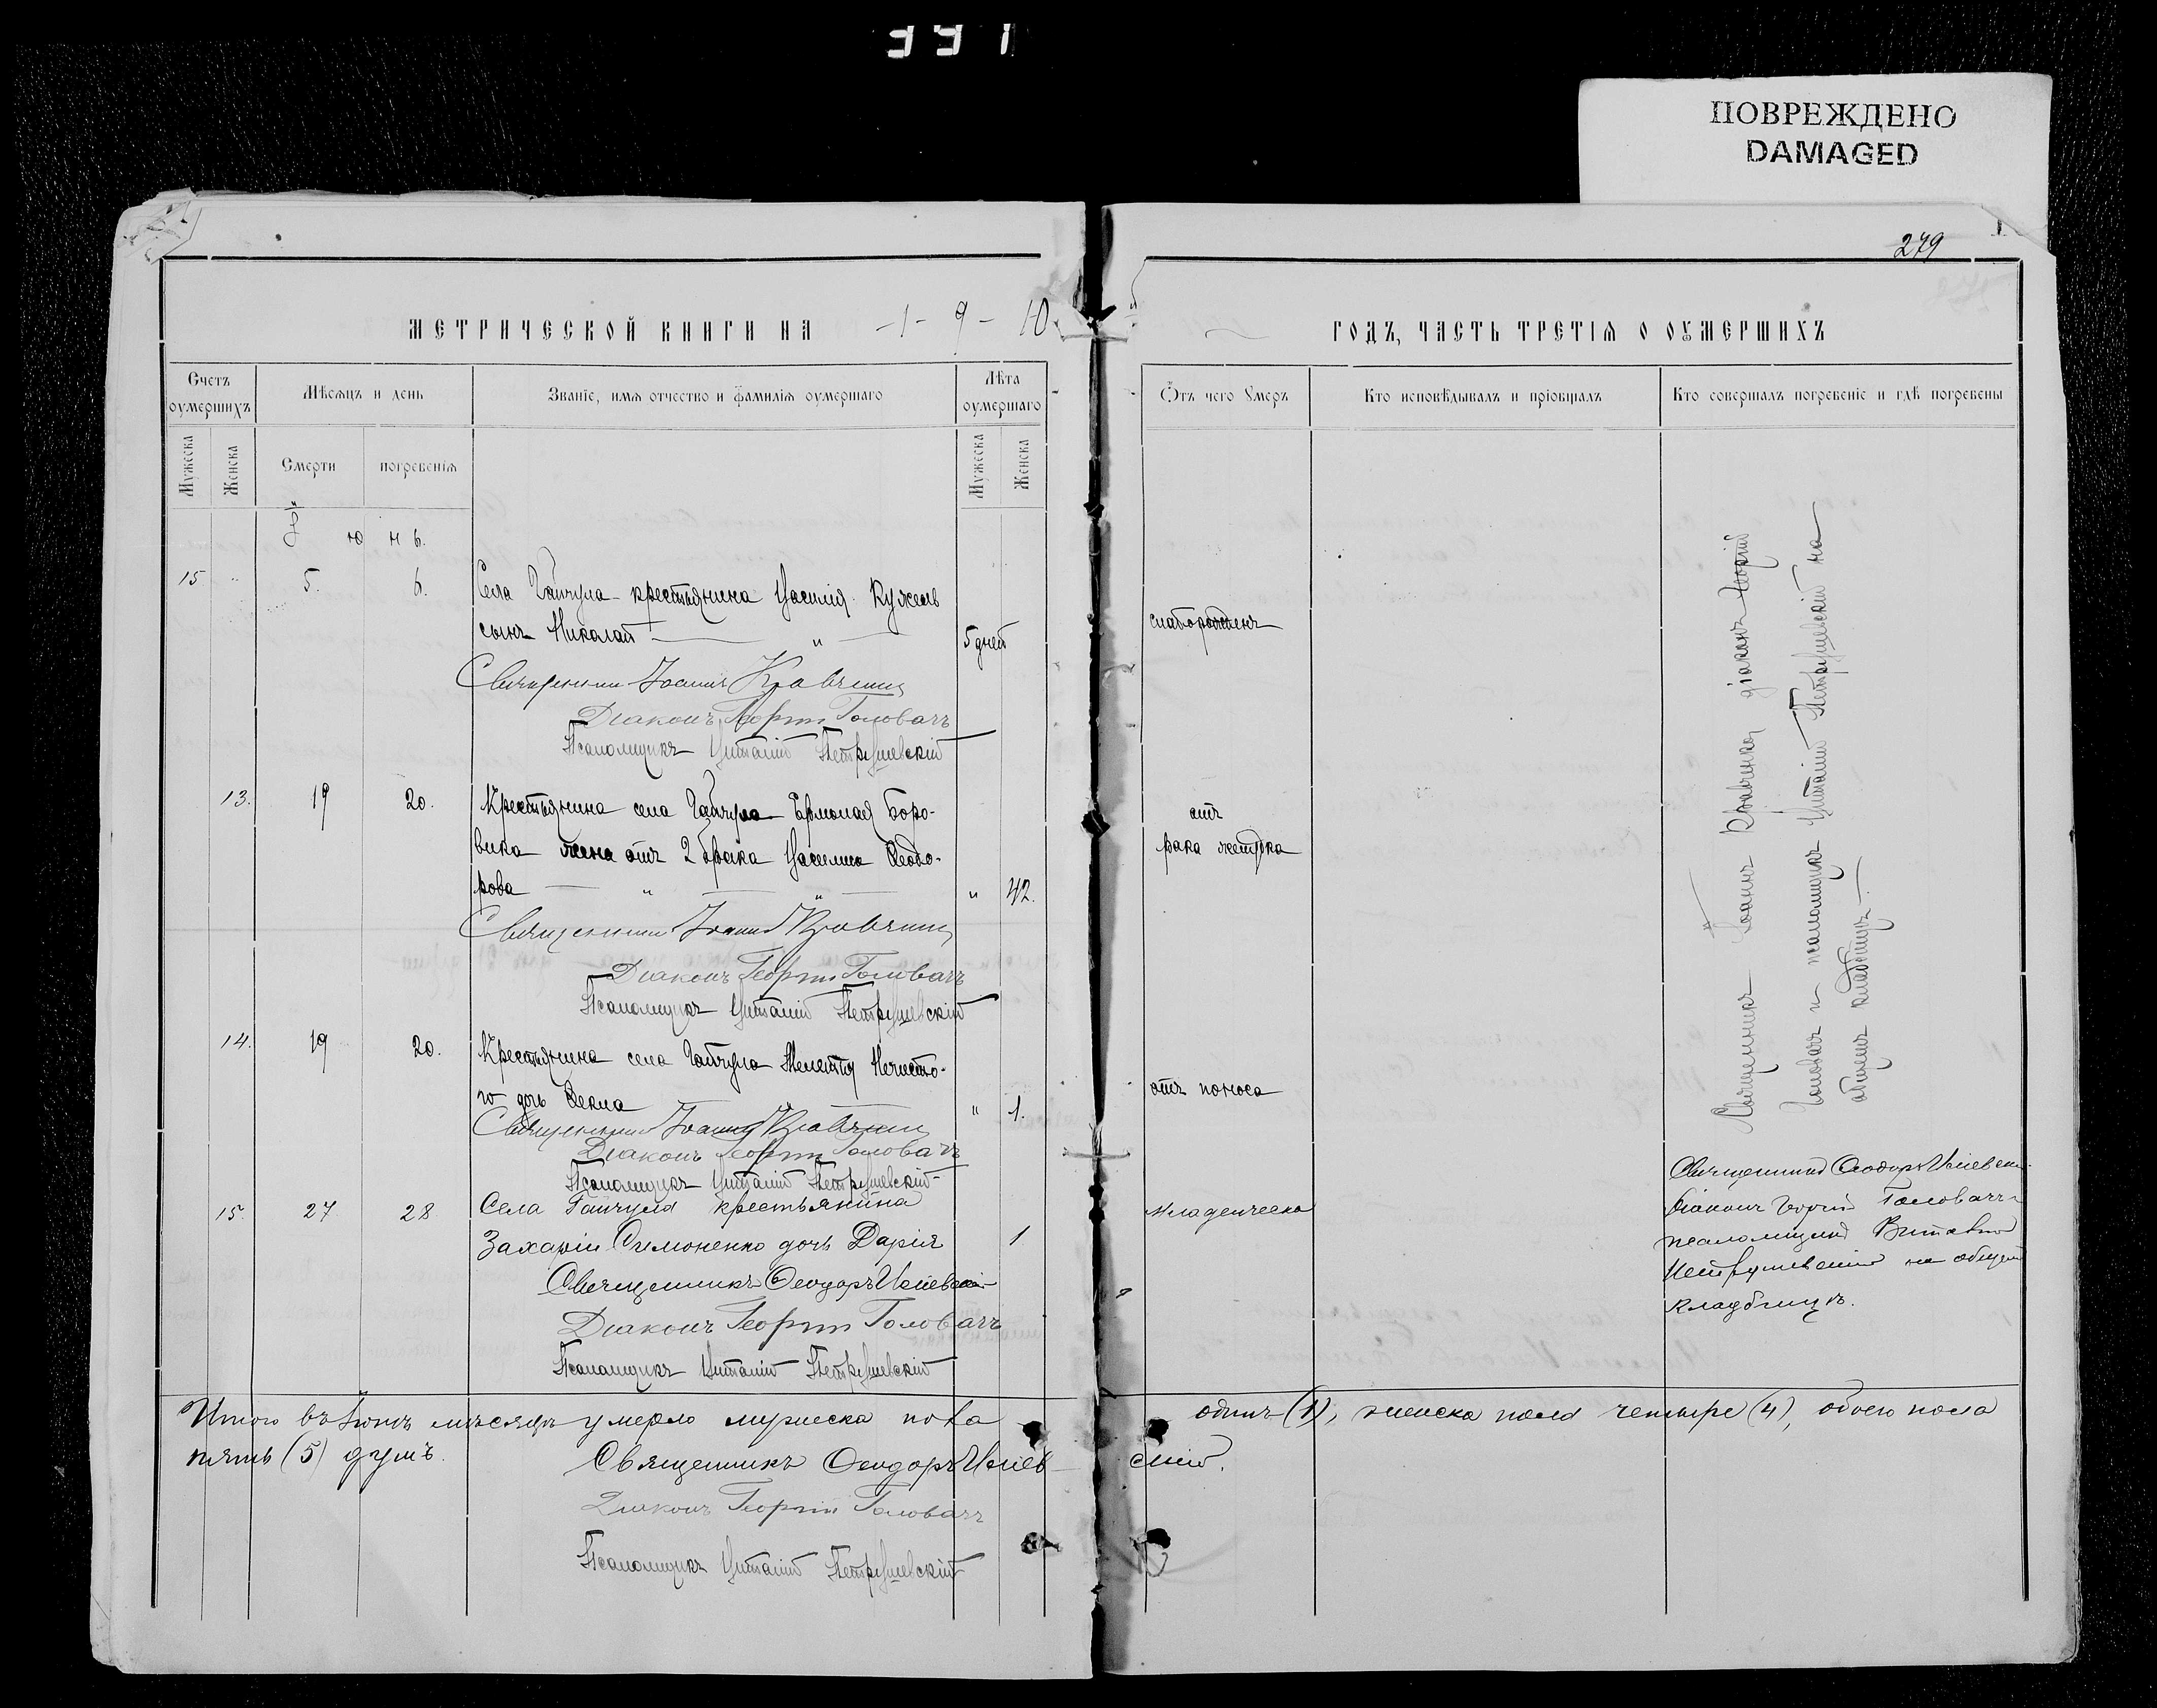 331
ПОВРЕЖДЕНО
DAMAGED
279
МЕТРИЧЕСКОЙ КНИГИ НА -1-9-10
ГОДЪ, ЧАСТЬ ТРЕТІЯ О ОУМЕРШИХЪ
Счетъ оумершихъ
Мѣсяцъ и день
Званіе, имя отчество и фамилія оумершаго
Лѣта оумершаго
Отъ чего Умеръ
Кто исповѣдывалъ и пріобщалъ
Кто совершалъ погребеніе и гдѣ погребены
Мужеска
Женска
Смерти
погребенія
Мужеска
Женска
Іюнь.
15 " 5. 6. Села Гайчула крестьянина Василія Кужель
сынъ Николай — " — 5 дней
слаборожденъ
Священникъ Іоаннъ Кравченко
Діаконъ Георгій Головачъ
Псаломщикъ Виталій Петрушевскій
13. 19 20. Крестьянина села Гайчула Ермолая Боро-
вика жена отъ 2 брака Василиса Ѳеодо-
рова — " — " — " 42.
отъ
рака желудка
Священникъ Іоаннъ Кравченко
Діаконъ Георгій Головачъ
Псаломщикъ Виталій Петрушевскій
14. 19 20. Крестьянина села Гайчула Мелетія Нечисто-
го дочь Ѳекла — " — " 1.
отъ поноса
Священникъ Іоаннъ Кравченко
Діаконъ Георгій Головачъ
Псаломщикъ Виталій Петрушевскій
Священникъ Іоаннъ Кравченко діаконъ Георгій
Головачъ и псаломщикъ Виталій Петрушевскій на
общемъ кладбищѣ —
15. 27 28 Села Гайчула крестьянина
Захаріи Симоненко дочь Дарія 1
младенческа
Священникъ Ѳеодоръ
Діаконъ Георгій Головачъ
Псаломщикъ Виталій Петрушевскій
Священникъ Ѳеодоръ
діаконъ Георгій Головачъ
псаломщикъ Виталій
Петрушевскій на общемъ
кладбищѣ.
Итого въ Іюнѣ мѣсяцѣ умерло мужеска пола одинъ (1), женска пола четыре (4), обоего пола
пять (5) душъ.
Священникъ Ѳеодоръ
Діаконъ Георгій Головачъ
Псаломщикъ Виталій Петрушевскій